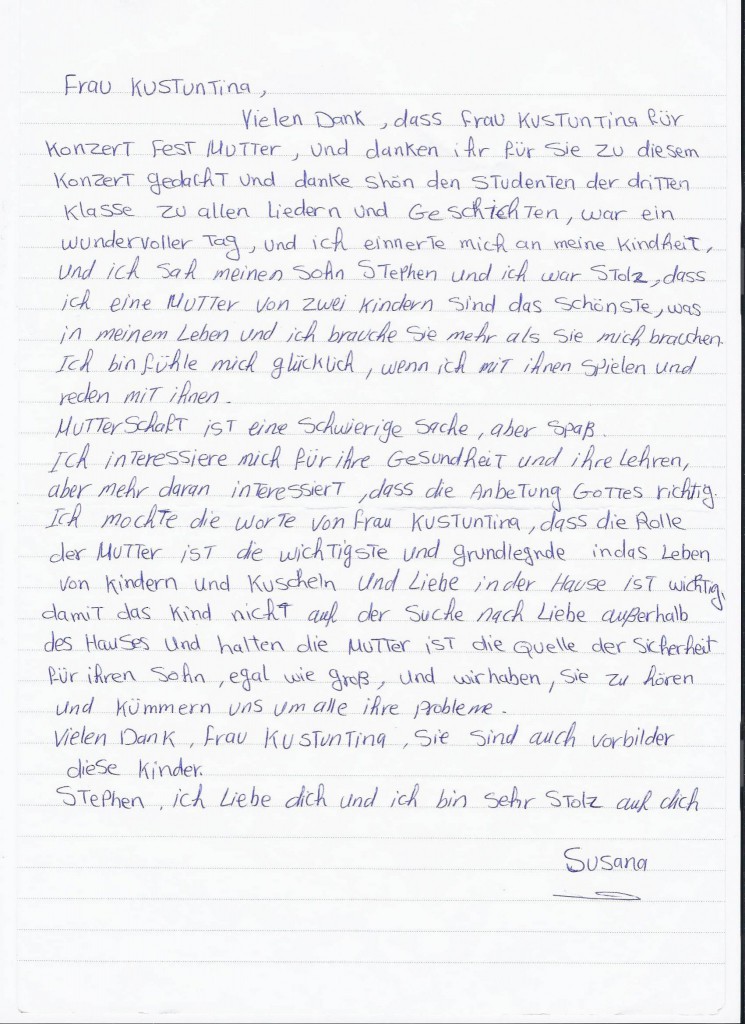 Frau Kustuntina,
Vielen Dank, dass Frau Kustuntina für
Konzert Fest Mutter, und danken ihr für Sie zu diesem
Konzert gedacht und danke shön den Studenten der dritten
Klasse zu allen Liedern und Geschichten, war ein
wundervoller Tag, und ich einnerte mich an meine Kindheit,
und ich sah meinen Sohn Stephen und ich war Stolz, dass
ich eine Mutter von zwei Kindern sind das schönste, was
in meinem Leben und ich brauche Sie mehr als Sie mich brauchen.
Ich bin fühle mich glücklich, wenn ich mit ihnen spielen und
reden mit ihnen.
Mutterschaft ist eine Schwierige Sache, aber Spaß.
Ich interessiere mich für ihre Gesundheit und ihre Lehren,
aber mehr daran interessiert, dass die Anbetung Gottes richtig.
Ich mochte die worte von Frau Kustuntina, dass die Rolle
der Mutter ist die wichtigste und grundlegnde indas Leben
von Kindern und Kuscheln und Liebe in der Hause ist wichtig,
damit das Kind nicht auf der Suche nach Liebe außerhalb
des Hauses und halten die Mutter ist die Quelle der Sicherheit
für ihren Sohn, egal wie groß, und wir haben, Sie zu hören
und kümmern uns um alle ihre Probleme.
Vielen Dank, Frau Kustuntina, Sie sind auch vorbilder
diese Kinder.
Stephen, ich Liebe dich und ich bin sehr Stolz auf dich
Susana